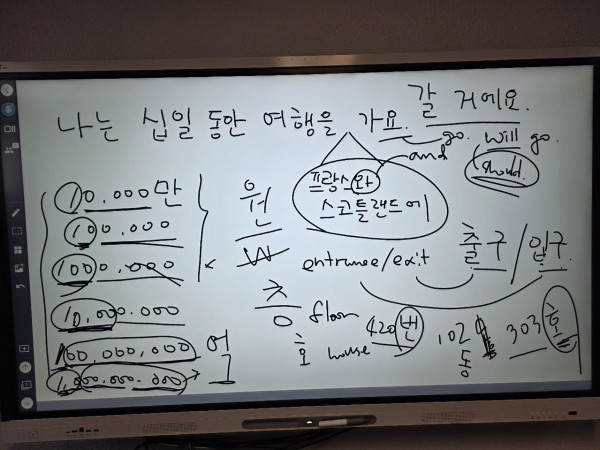 갈 거에요.
나는 십일 동안 여행을 가요. go. will go.
and should.
프랑스와
스코틀랜드에
10.000만
100.000
1000.000
10,000.000
100,000,000 억
1,000.000.000
원
₩
entrance/exit 출구/입구
층 floor
호 house
420번
102동
303호